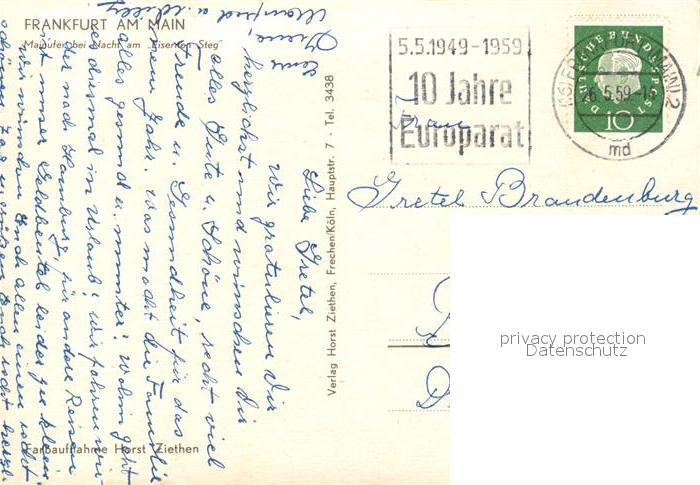 FRANKFURT AM MAIN
Mainufer bei Nacht am "Eisernen Steg"
Liebe Gretel,
Wir gratulieren Dir
herzlichst und wünschen Dir
alles Gute u. Schöne, recht viel
Freude u. Gesundheit für das
neue Jahr. Was macht die Familie
alles gesund u. munter? Wohin geht
es diesmal in Urlaub? Wir fahren wieder
nach Hamburg, für andere Reisen
ist unser Geldbeutel leider zu klein.
Wir wünschen Euch allen einen recht
schönen Tag u. grüßen Euch recht herzl.
Manfred u. Willy
Farbaufnahme Horst Ziethen
Verlag Horst Ziethen, Frechen/Köln, Hauptstr. 7 · Tel. 3438
5.5.1949-1959
10 Jahre
Europarat
DEUTSCHE BUNDESPOST
10
6.5.59
md
Frau
Gretel Brandenburg
privacy protection
Datenschutz